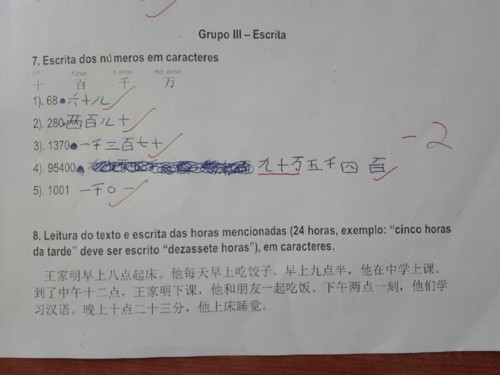 Grupo III – Escrita
7. Escrita dos números em caracteres
十 百 千 万
1). 68 六十八
2). 280 两百八十
3). 1370 一千三百七十
4). 95400 九十万五千四百
-2
5). 1001 一千0一
8. Leitura do texto e escrita das horas mencionadas (24 horas, exemplo: “cinco horas
da tarde” deve ser escrito “dezassete horas”), em caracteres.
王家明早上八点起床。他每天早上吃饺子。早上九点半，他在中学上课。
到了中午十二点，王家明下课，他和朋友一起吃饭。下午两点一刻，他们学
习汉语。晚上十点二十三分，他上床睡觉。